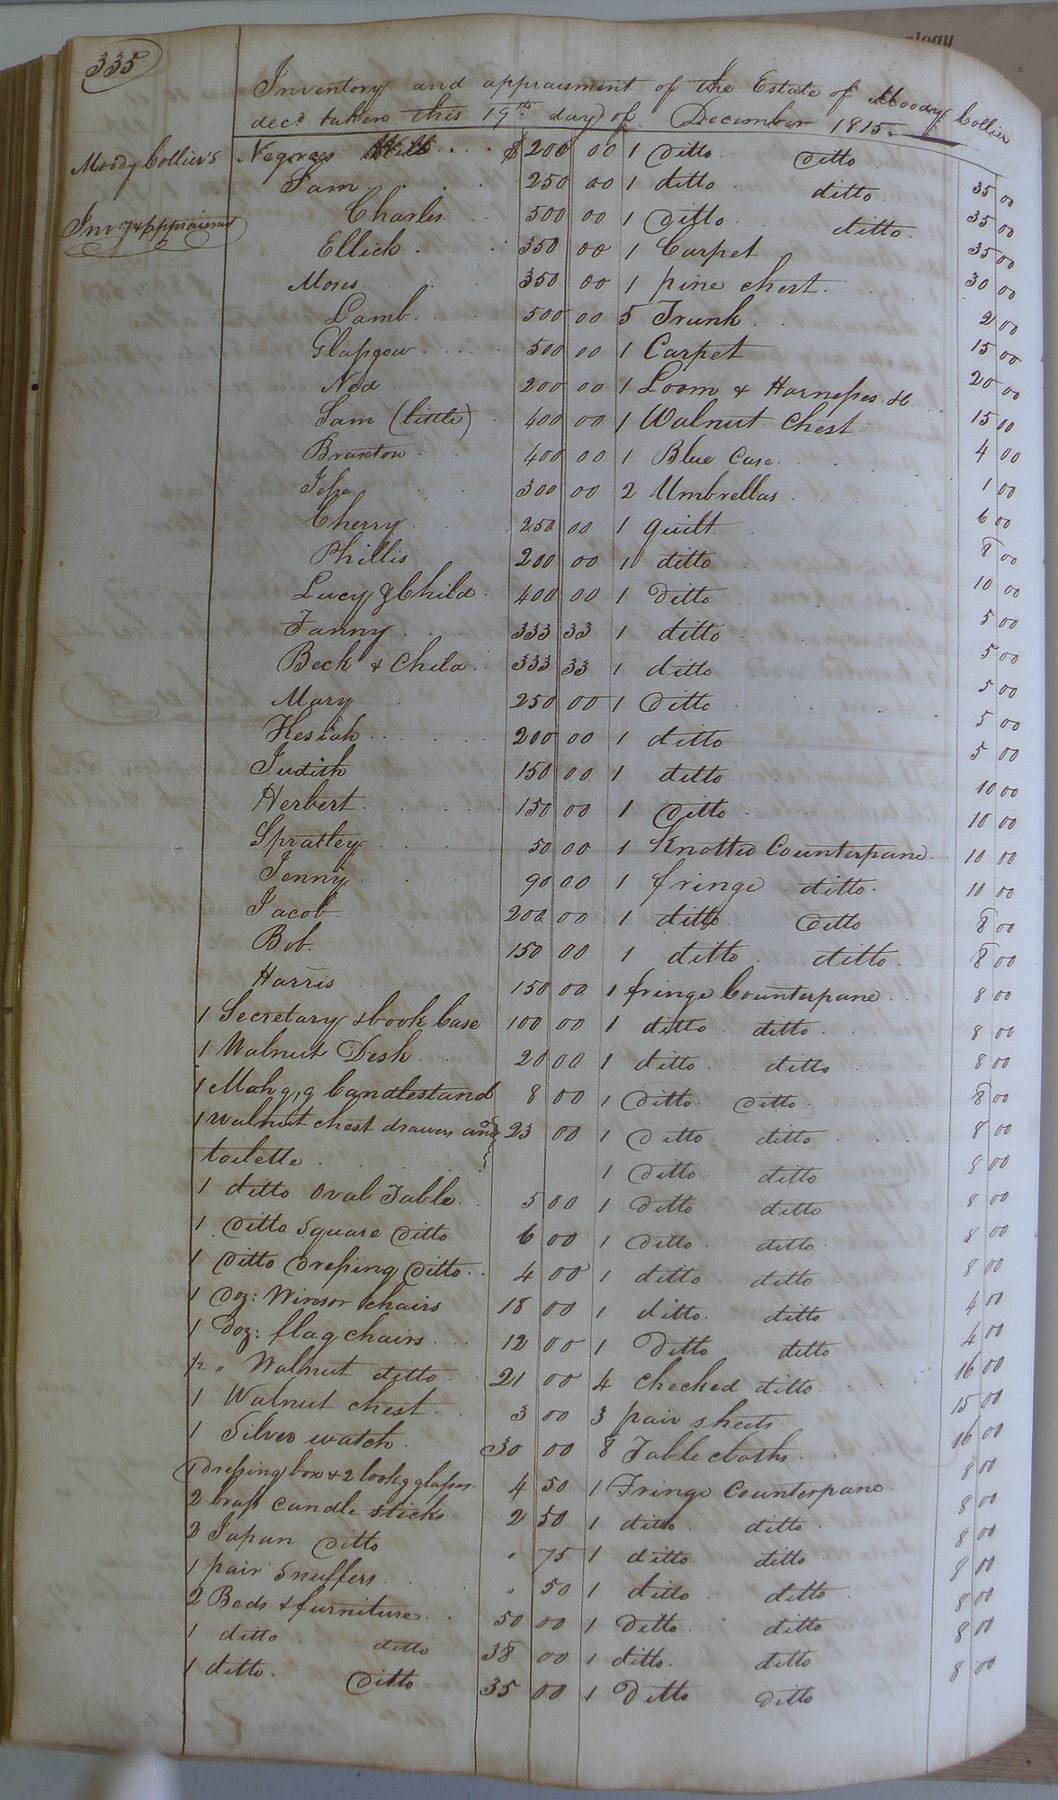 335
Inventory and appraisment of the Estate of Moody Collier
decd. taken this 19th day of December 1815.
Moody Collier's
Inv y & appraismt
Negroes Will $ 200 00
Sam 250 00
Charles 500 00
Ellick 350 00
Moses 350 00
Lamb 500 00
Glasgow 500 00
Ned 200 00
Sam (little) 400 00
Braxton 400 00
Jesse 300 00
Cherry 250 00
Phillis 200 00
Lucy & Child 400 00
Fanny 333 33
Beck & Child 333 33
Mary 250 00
Kesiah 200 00
Judith 150 00
Herbert 150 00
Spratley 50 00
Jenny 90 00
Jacob 200 00
Bob. 150 00
Harris 150 00
1 Secretary & book Case 100 00
1 Walnut Desk 20 00
1 Mahgy Candlestand 8 00
1 walnut chest drawers and 23 00
toilette
1 ditto Oval Table 5 00
1 Ditto Square Ditto 6 00
1 Ditto Dressing Ditto 4 00
1 Doz: Winsor Chairs 18 00
1 Doz: flag chairs 12 00
Walnut ditto 21 00
1 Walnut chest 3 00
1 Silver watch 30 00
Dressing box & 2 lookg glasses 4 50
2 brass Candle sticks 2 50
2 Japan Ditto " 75
1 pair Snuffers " 50
2 Beds & furniture 50 00
1 ditto ditto 38 00
1 ditto Ditto 35 00
1 Ditto Ditto 35 00
1 ditto ditto 35 00
1 Ditto ditto 35 00
1 Carpet 30 00
1 pine chest 2 00
5 Trunk 15 00
1 Carpet 20 00
1 Loom & Harnesses &c 15 00
1 Walnut Chest 4 00
1 Blue Case 1 00
2 Umbrellas 6 00
1 quilt 8 00
1 ditto 10 00
1 Ditto 5 00
1 ditto 5 00
1 ditto 5 00
1 Ditto 5 00
1 ditto 5 00
1 ditto 10 00
1 Ditto 10 00
1 Knotted Counterpane 10 00
1 fringe ditto 10 00
1 ditto Ditto 8 00
1 ditto ditto 8 00
1 fringe Counterpane 8 00
1 ditto ditto 8 00
1 ditto ditto 8 00
1 Ditto Ditto 8 00
1 Ditto ditto 8 00
1 Ditto ditto 8 00
1 Ditto ditto 8 00
1 Ditto ditto 8 00
1 ditto ditto 8 00
1 ditto ditto 4 00
1 Ditto ditto 4 00
4 Checked ditto 16 00
3 pair sheets 15 00
8 Table cloths 16 00
1 Fringe Counterpane 8 00
1 ditto ditto 8 00
1 ditto ditto 8 00
1 ditto ditto 8 00
1 Ditto ditto 8 00
1 ditto ditto 8 00
1 Ditto Ditto 8 00